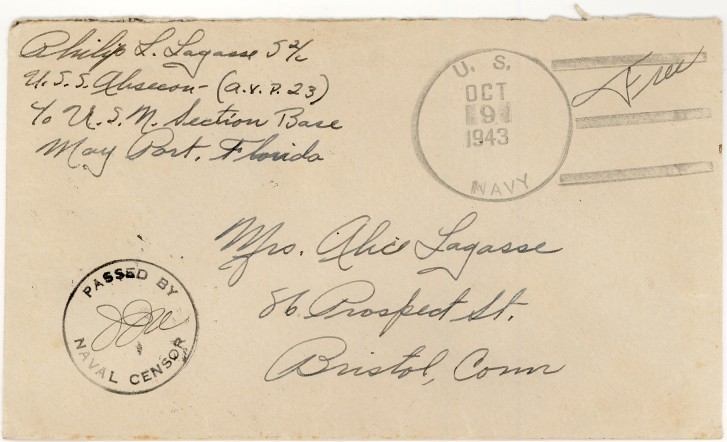 Philip L. Lagasse S 2/c
U.S.S. Absecon - (A.V.P. 23)
c/o U.S.N. Section Base
May Port, Florida
U. S.
OCT
9
1943
NAVY
Free
Mrs. Alice Lagasse
86 Prospect St.
Bristol, Conn
PASSED BY
NAVAL CENSOR